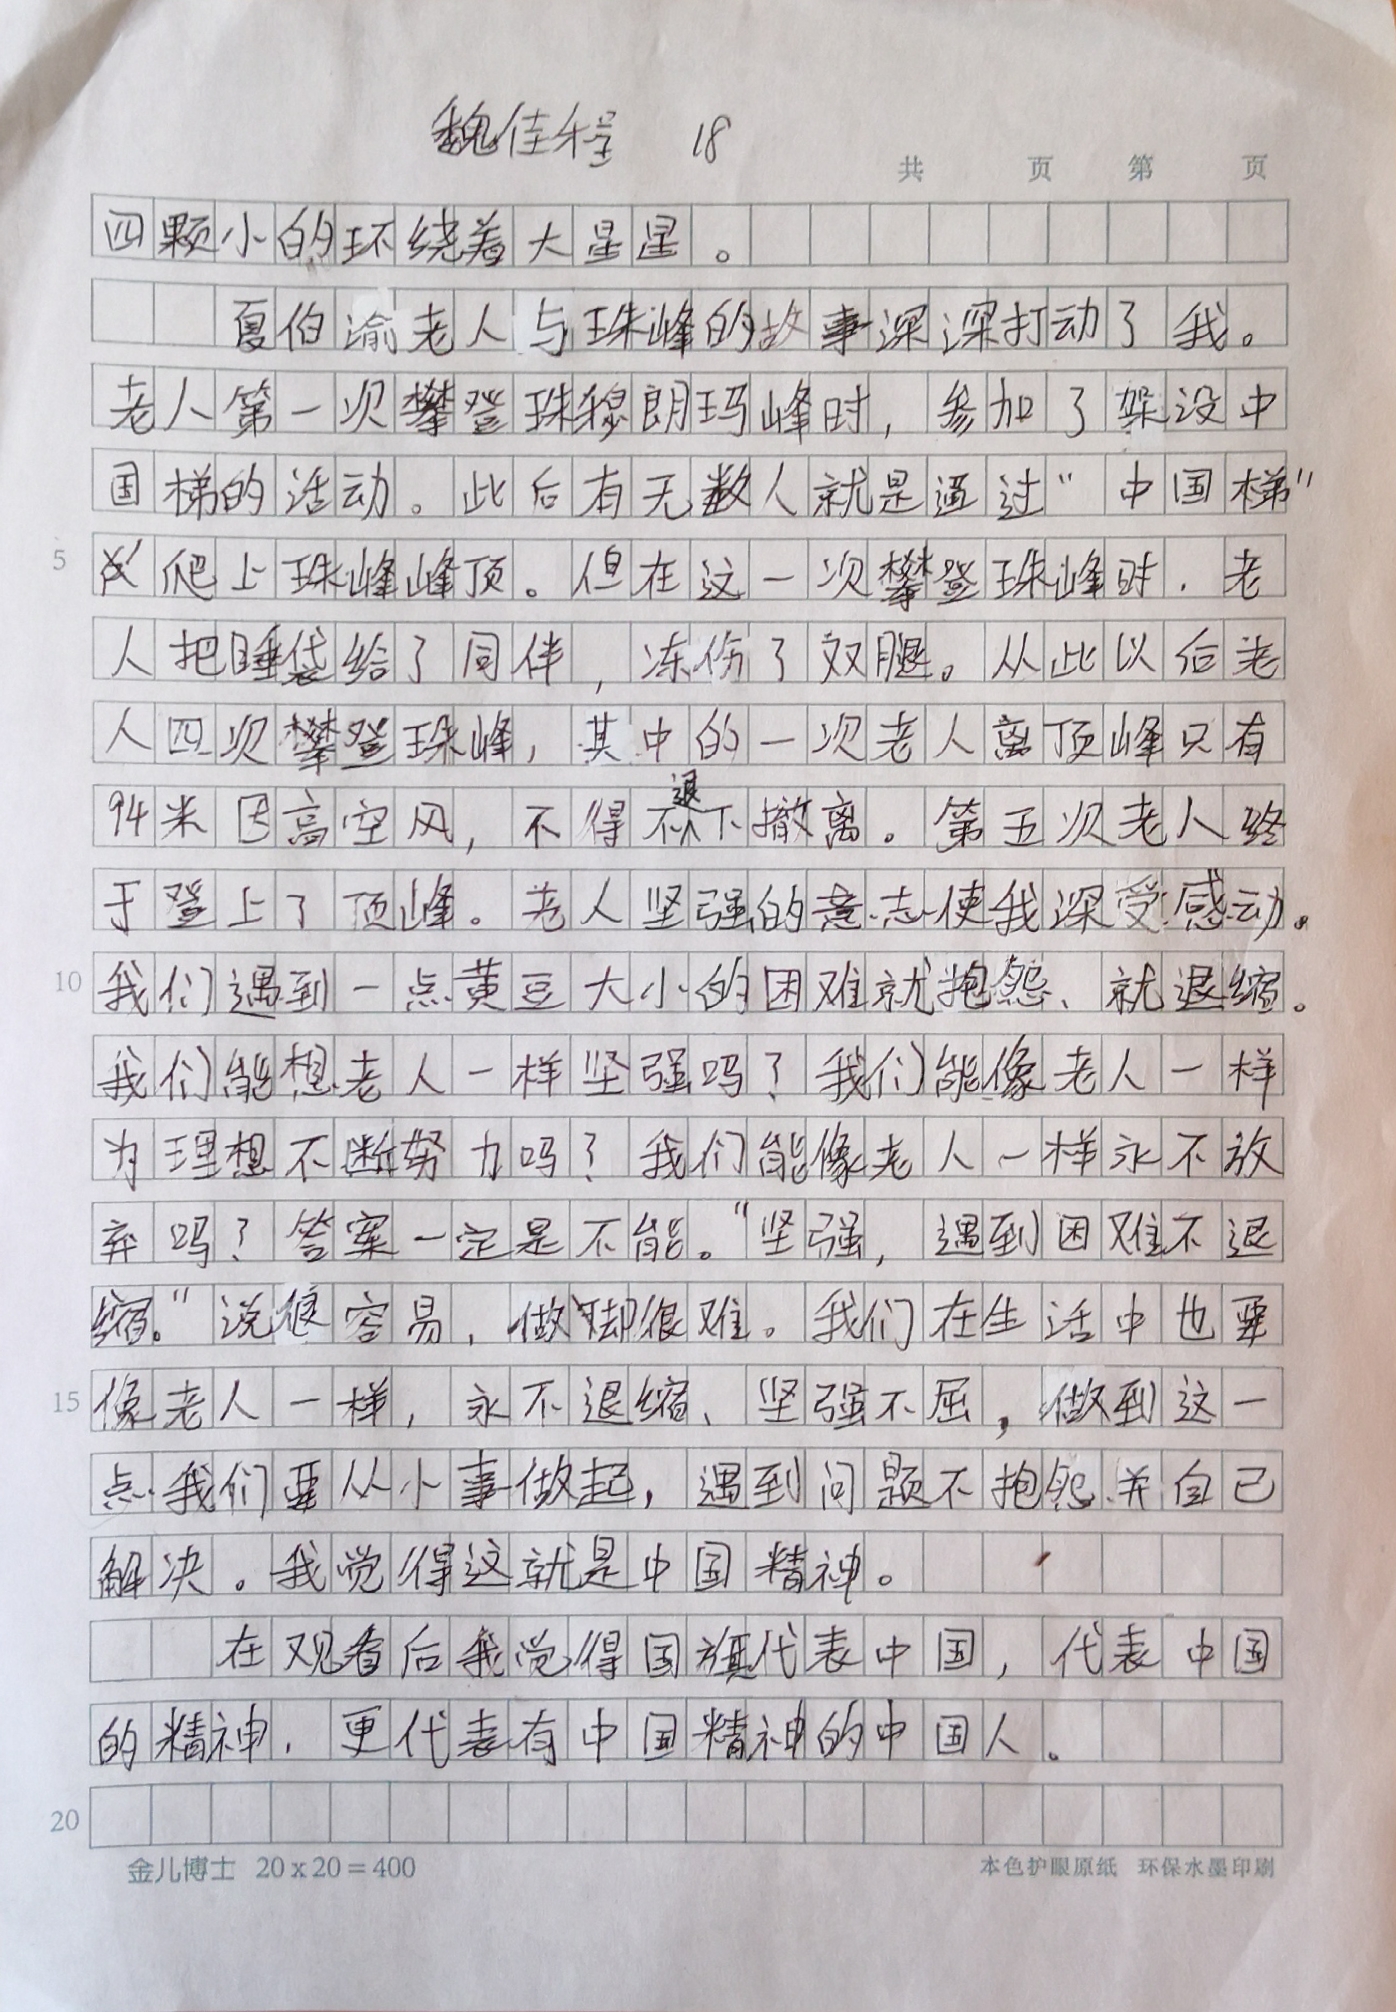 魏佳程 18
共 页 第 页
四颗小的环绕着大星星。
夏伯渝老人与珠峰的故事深深打动了我。
老人第一次攀登珠穆朗玛峰时，参加了架设中
国梯的活动。此后有无数人就是通过“中国梯”
爬上珠峰峰顶。但在这一次攀登珠峰时，老
人把睡袋给了同伴，冻伤了双腿。从此以后老
人四次攀登珠峰，其中的一次老人离顶峰只有
94米因高空风，不得不退下撤离。第五次老人终
于登上了顶峰。老人坚强的意志使我深受感动。
10 我们遇到一点黄豆大小的困难就抱怨、就退缩。
我们能想老人一样坚强吗？我们能像老人一样
为理想不断努力吗？我们能像老人一样永不放
弃吗？答案一定是不能。“坚强，遇到困难不退
缩。”说很容易，做脚很难。我们在生活中也要
15 像老人一样，永不退缩、坚强不屈，做到这一
点我们要从小事做起，遇到问题不抱怨并自己
解决。我觉得这就是中国精神。
在观看后我觉得国旗代表中国，代表中国
的精神，更代表有中国精神的中国人。
20
金儿博士 20x20=400 本色护眼原纸 环保水墨印刷